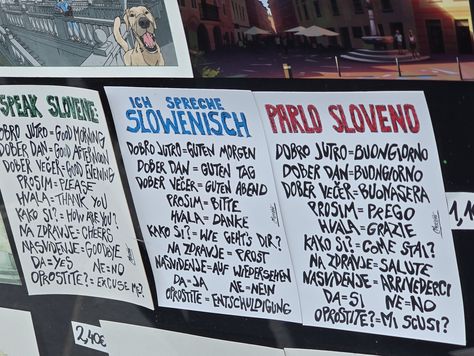 SPEAK SLOVENE
DOBRO JUTRO=GOOD MORNING
DOBER DAN=GOOD AFTERNOON
DOBER VEČER=GOOD EVENING
PROSIM=PLEASE
HVALA=THANK YOU
KAKO SI?=HOW ARE YOU?
NA ZDRAVJE=CHEERS
NASVIDENJE=GOODBYE
DA=YES NE=NO
OPROSTITE?=EXCUSE ME?
ICH SPRECHE
SLOWENISCH
DOBRO JUTRO=GUTEN MORGEN
DOBER DAN=GUTEN TAG
DOBER VEČER=GUTEN ABEND
PROSIM=BITTE
HVALA=DANKE
KAKO SI?=WIE GEHT'S DIR?
NA ZDRAVJE=PROST
NASVIDENJE=AUF WIEDERSEHEN
DA=JA NE=NEIN
OPROSTITE=ENTSCHULDIGUNG
PARLO SLOVENO
DOBRO JUTRO=BUONGIORNO
DOBER DAN=BUONGIORNO
DOBER VEČER=BUONASERA
PROSIM=PREGO
HVALA=GRAZIE
KAKO SI?=COME STAI?
NA ZDRAVJE=SALUTE
NASVIDENJE=ARRIVEDERCI
DA=SI NE=NO
OPROSTITE?=MI SCUSI?
2,40€